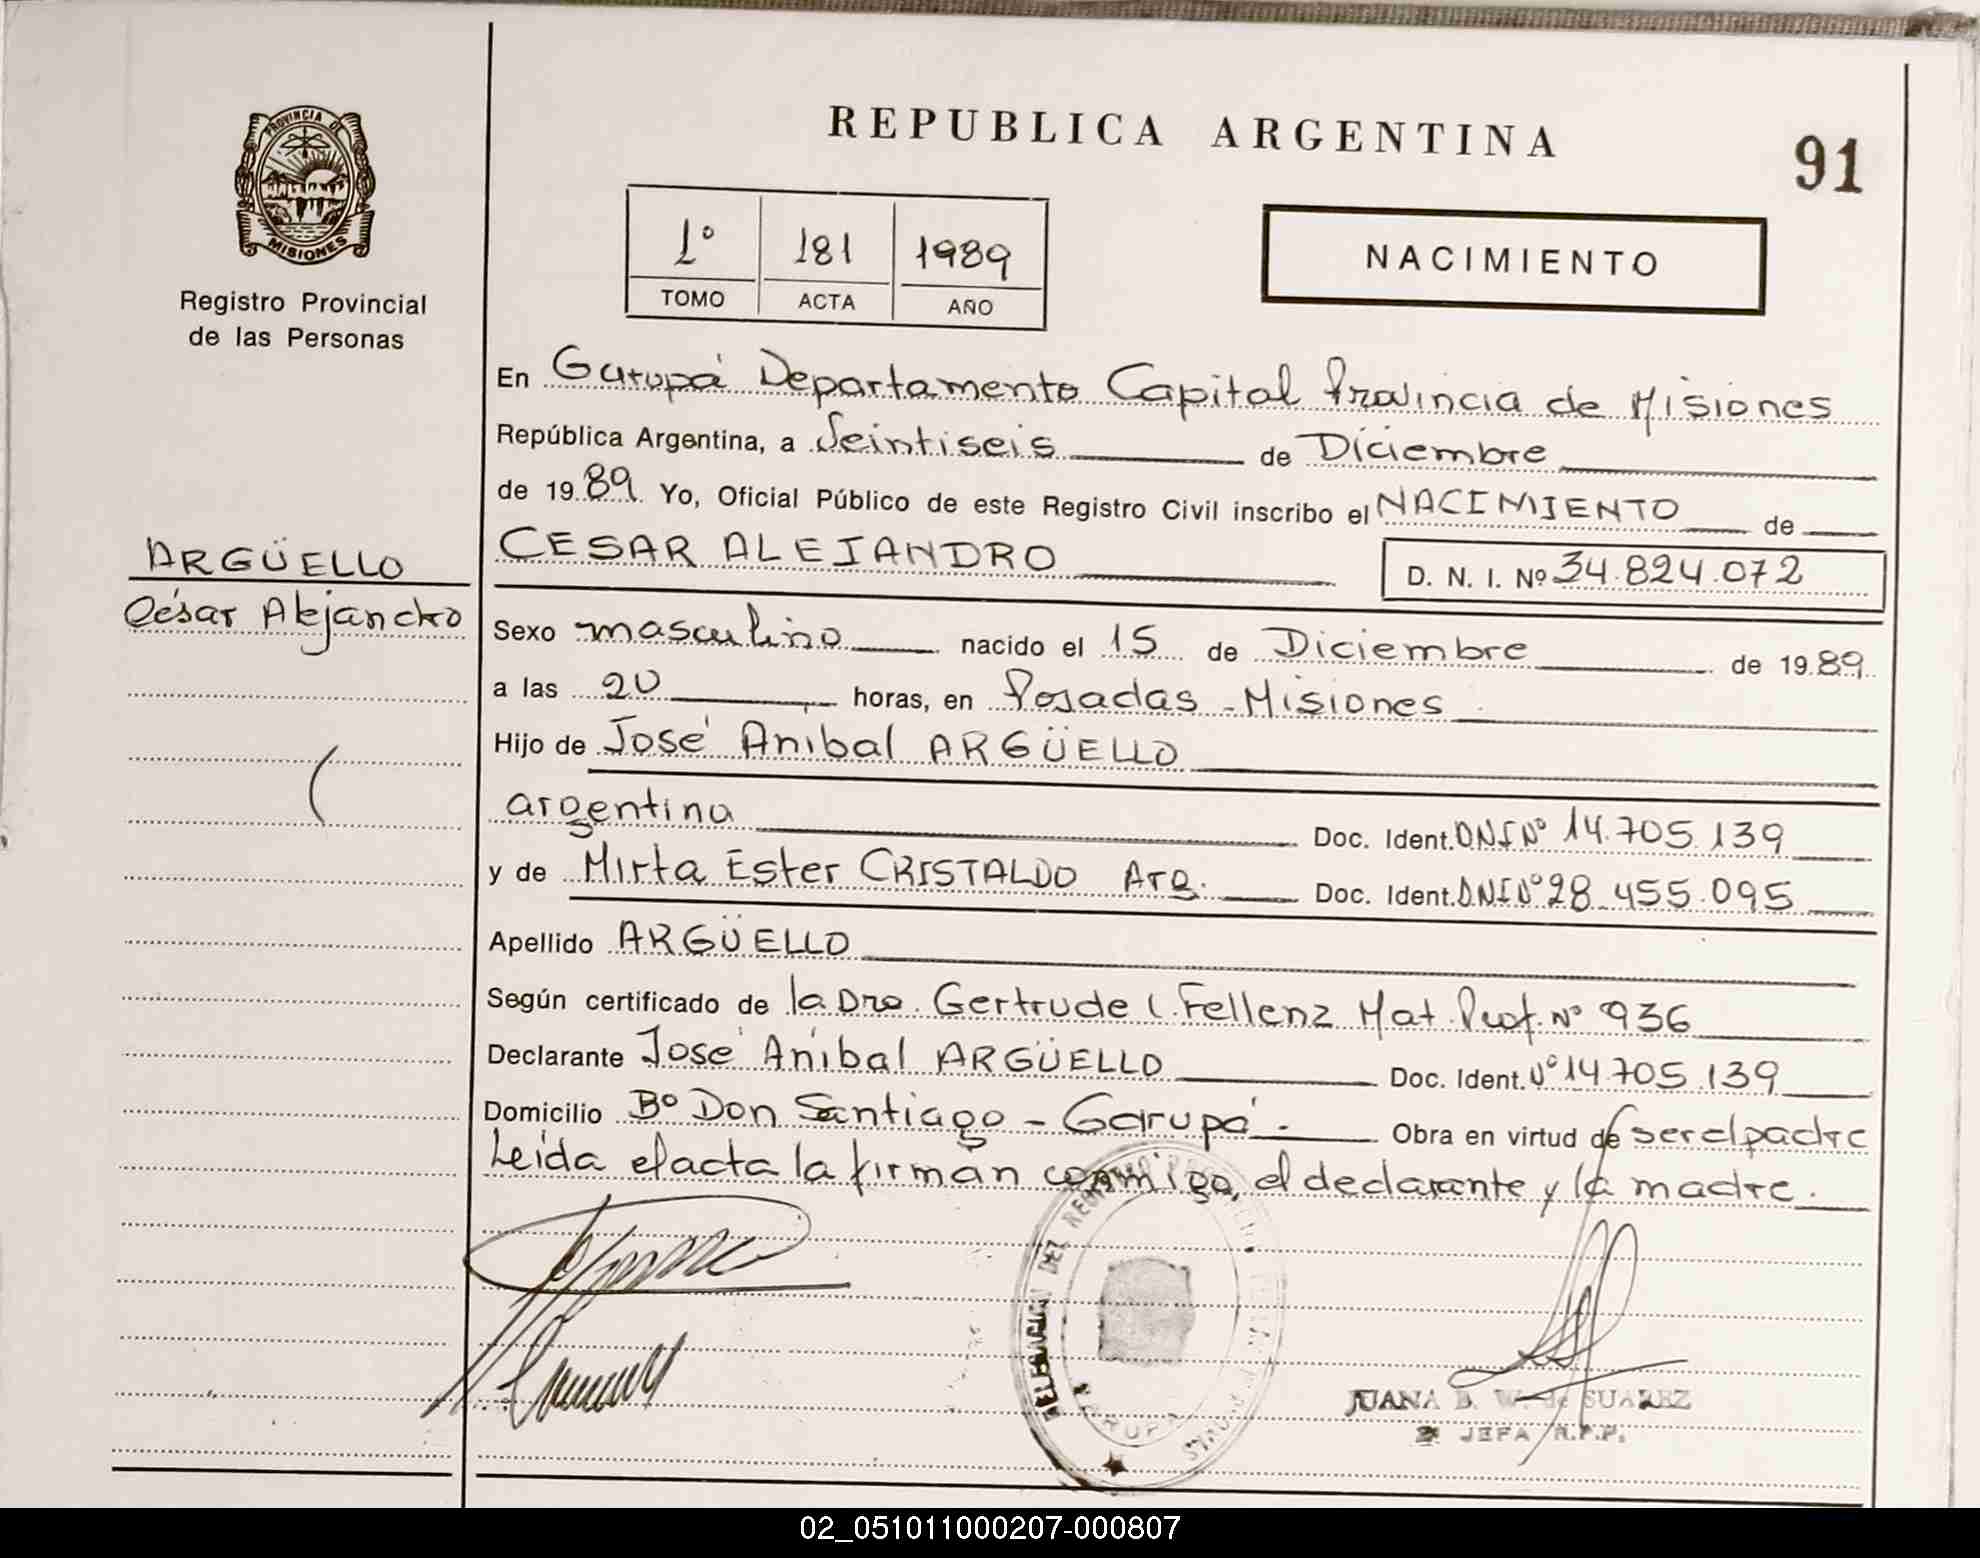 PROVINCIA DE
MISIONES
Registro Provincial
de las Personas
REPUBLICA ARGENTINA
91
1º 181 1989
TOMO ACTA AÑO
NACIMIENTO
En Garupá Departamento Capital Provincia de Misiones
República Argentina, a Veintiseis de Diciembre
de 1989 Yo, Oficial Público de este Registro Civil inscribo el NACIMIENTO de
CESAR ALEJANDRO
D. N. I. Nº 34.824.072
ARGÜELLO
César Alejandro
Sexo masculino nacido el 15 de Diciembre de 1989
a las 20 horas, en Posadas - Misiones
Hijo de José Anibal ARGÜELLO
argentina Doc. Ident. DNI Nº 14.705.139
y de Mirta Ester CRISTALDO Arg. Doc. Ident. DNI Nº 28.455.095
Apellido ARGÜELLO
Según certificado de la Dra. Gertrude Fellenz Mat. Prof. Nº 936
Declarante José Aníbal ARGÜELLO Doc. Ident. Nº 14.705.139
Domicilio Bº Don Santiago - Garupá. Obra en virtud de ser el padre
Leida el acta la firman conmigo, el declarante y la madre.
DELEGACION DEL
GARUPA
JUANA E. W. de SUAREZ
JEFA R.P.P.
02_051011000207-000807